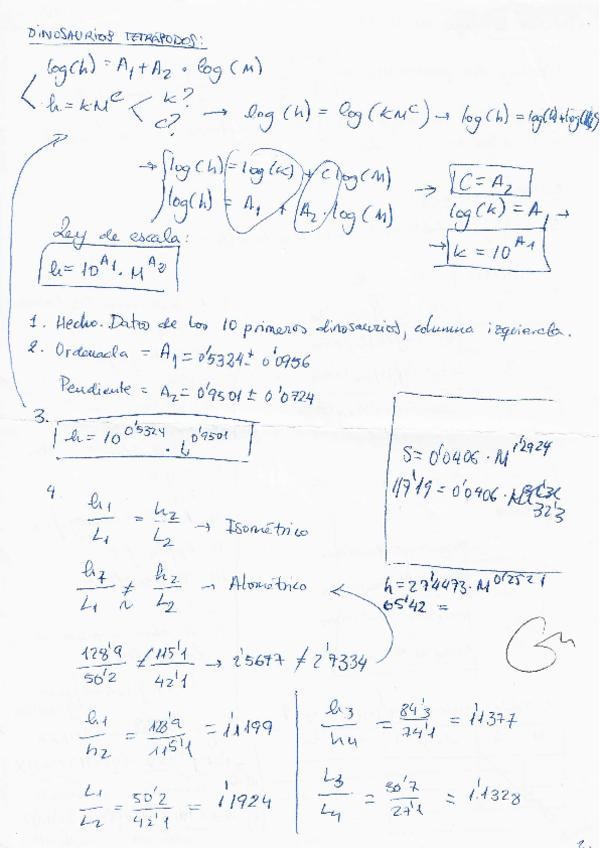 DINOSAURIOS TETRÁPODOS:
log(h) = A₁ + A₂ · log(M)
h = kM^c < k? c? → log(h) = log(kM^c) → log(h) = log(k) + log(M^c)
→ { log(h) = log(k) + C log(M) → C = A₂
log(h) = A₁ + A₂ · log(M) log(k) = A₁ →
→ k = 10^A₁
Ley de escala:
h = 10^A₁ · M^A₂
1. Hecho. Datos de los 10 primeros dinosaurios, columna izquierda.
2. Ordenada = A₁ = 0'5324 ± 0'0956
Pendiente = A₂ = 0'9501 ± 0'0724
3. h = 10^0'5324 · L^0'9501
S = 0'0406 · M^1'2924
117'19 = 0'0406 · M
32'3
4. h₁/L₁ = h₂/L₂ → Isométrico
h₁/L₁ ≠ h₂/L₂ → Alométrico
h = 27'4473 · M^0'2521
65'42 =
128'9/50'2 ≠ 115'1/42'1 → 2'5677 ≠ 2'7334
h₁/h₂ = 128'9/115'1 = 1'1199
L₁/L₂ = 50'2/42'1 = 1'1924
h₃/h₄ = 84'3/74'1 = 1'1377
L₃/L₄ = 30'7/27'1 = 1'1328